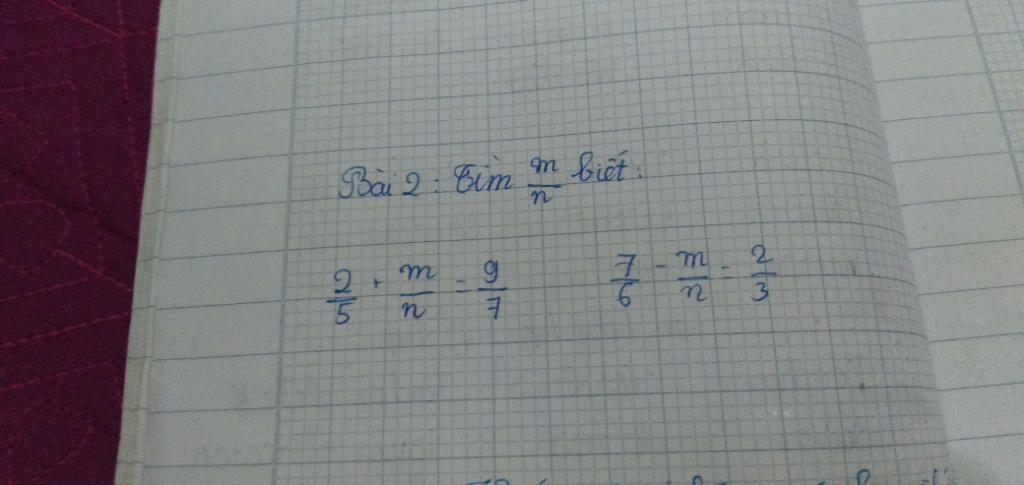 Bài 2: Tìm m/n biết:
2/5 + m/n = 9/7    7/6 - m/n = 2/3